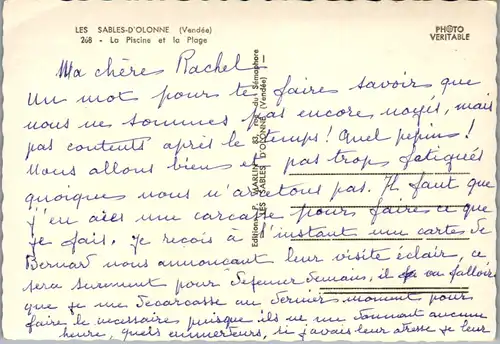 LES SABLES-D'OLONNE (Vendée)
268 - La Piscine et la Plage
PHOTO
VERITABLE
Ma chère Rachel
Un mot pour te faire savoir que
nous ne sommes pas encore noyés, mais
pas contents après le temps! Quel pépins!
Nous allons bien et pas trop fatigués
quoique nous n'arretons pas. Il faut que
j'en aie une carcasse pour faire ce que
je fais. Je reçois à l'instant une cartes de
Bernard nous annonçant leur visite éclair, ce
sera surement pour dejeuner demain, il va falloir
que je me decarcasse au dernier moment pour
faire le necessaire puisque ils ne me donnent aucune
heure, quels emmerdeurs, si j'avais leur adresse je leur
Editions P. WARLIN, 83, rue du Sémaphore
LES SABLES D'OLONNE (Vendée)